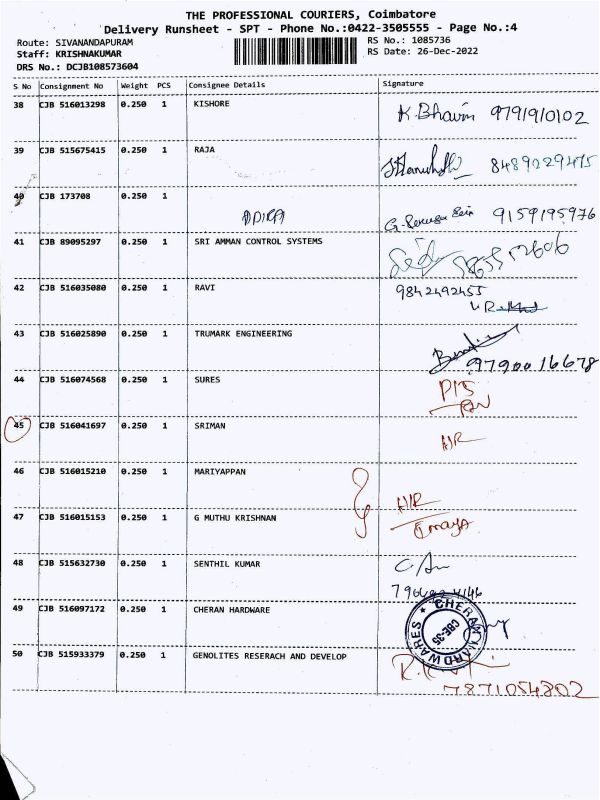 THE PROFESSIONAL COURIERS, Coimbatore
Delivery Runsheet - SPT - Phone No.:0422-3505555 - Page No.:4
Route: SIVANANDAPURAM
RS No.: 1085736
Staff: KRISHNAKUMAR
RS Date: 26-Dec-2022
DRS No.: DCJB108573604
S No Consignment No Weight PCS Consignee Details Signature
38 CJB 516013298 0.250 1 KISHORE
K. Bhavin 9791910102
39 CJB 515675415 0.250 1 RAJA
8489029475
40 CJB 173708 0.250 1
ADIRA 9159195976
41 CJB 89095297 0.250 1 SRI AMMAN CONTROL SYSTEMS
42 CJB 516035080 0.250 1 RAVI 9842492455
43 CJB 516025890 0.250 1 TRUMARK ENGINEERING
9790016678
44 CJB 516074568 0.250 1 SURES
45 CJB 516041697 0.250 1 SRIMAN
46 CJB 516015210 0.250 1 MARIYAPPAN
47 CJB 516015153 0.250 1 G MUTHU KRISHNAN
48 CJB 515632730 0.250 1 SENTHIL KUMAR
49 CJB 516097172 0.250 1 CHERAN HARDWARE
CHERAN HARDWARES
CBE-35
50 CJB 515933379 0.250 1 GENOLITES RESERACH AND DEVELOP
7871054802